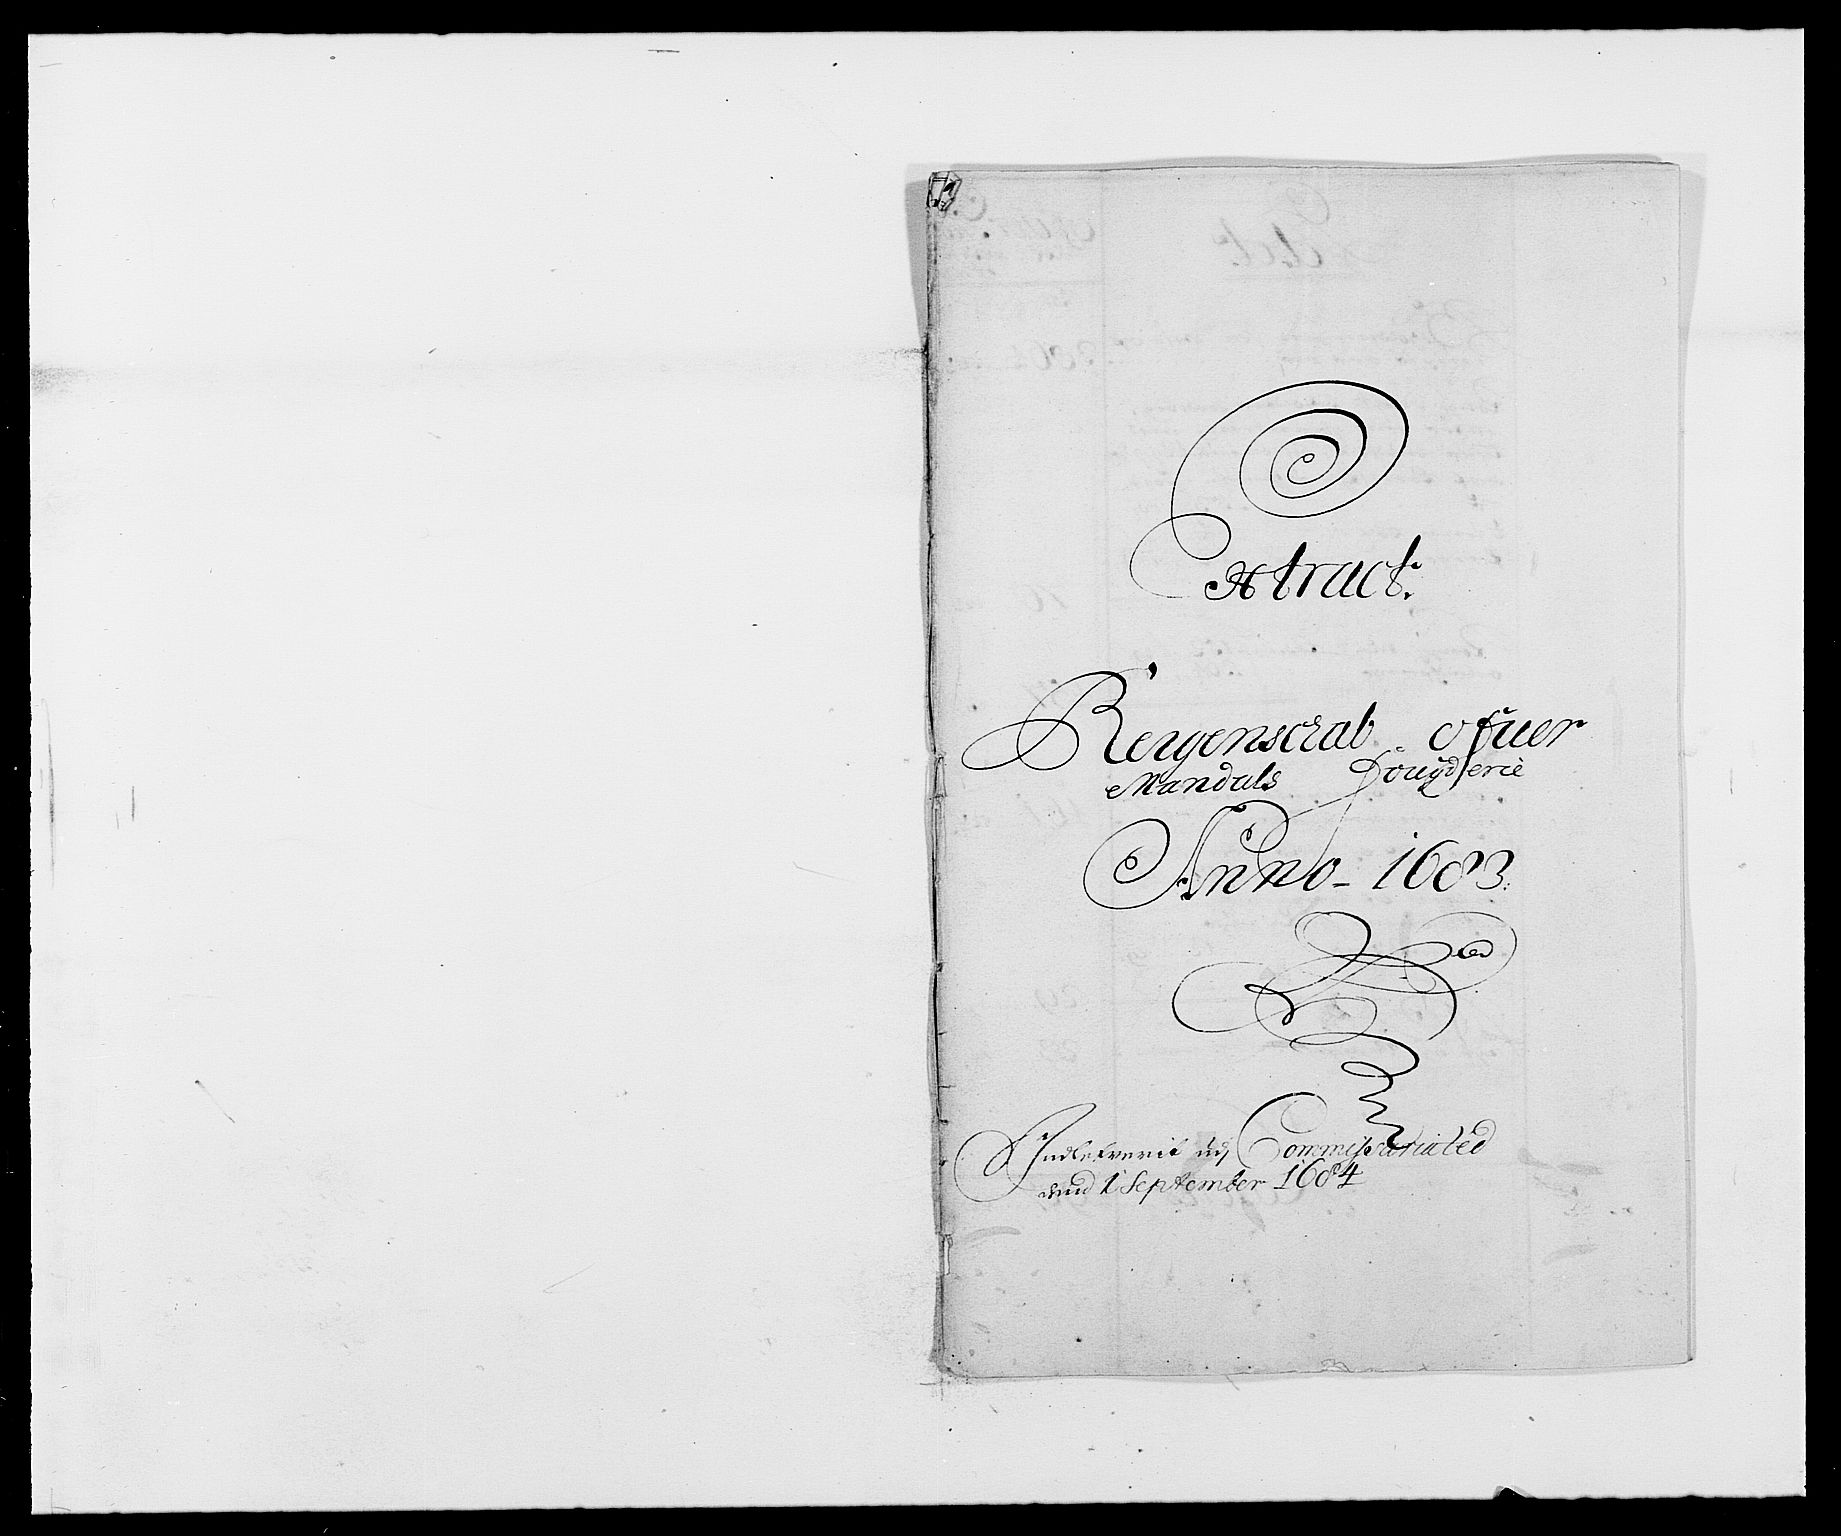 Extract.
Reigenscrab offuer
Mandals Fougderie
Anno - 1683.
Indlefverit udj Commissariated
dend 1 September 1684